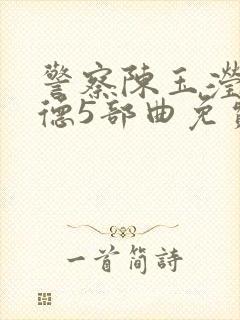 警察陳玉瀅
德5部曲免
一首简詩